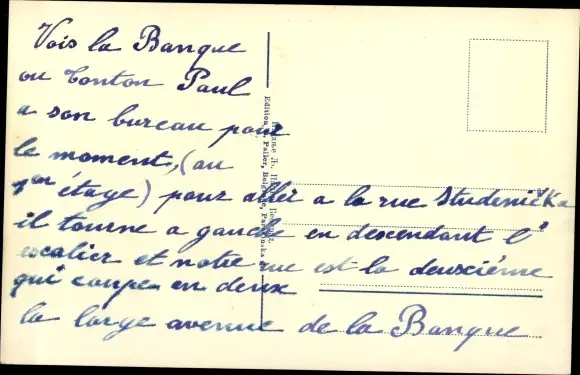 Vois la Banque
ou Tonton Paul
a son bureau pour
le moment, (au
1er étage) pour aller a la rue Studenička
il tourne a gauche en descendant l'
escalier et notre rue est la deuxciéme
qui coupe en deux
la large avenue de la Banque
Edition